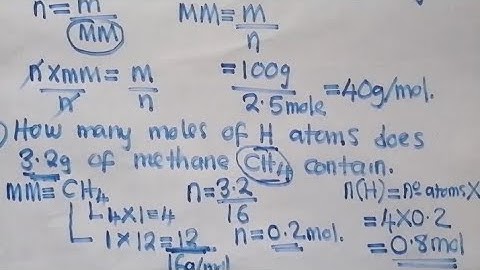 n = m/MM MM = m/n
n × mM/n = m/n = 100g/2.5mole = 40g/mol.
) How many moles of H atoms does
3.2g of methane CH4 contain.
MM = CH4 n = 3.2/16 n(H) = nº atoms X
4 X 1 = 4 n = 0.2 mol. = 4 X 0.2
1 X 12 = 12 = 0.8 mol
16g/mol